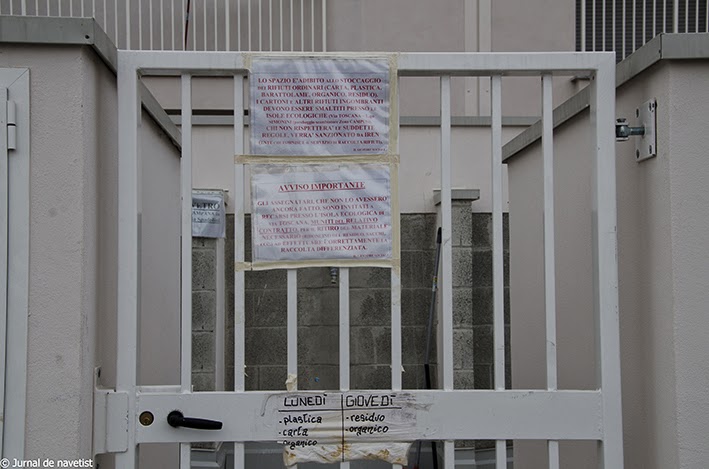 LO SPAZIO E'ADIBITO ALLO STOCCAGGIO
DEI RIFIUTI ORDINARI (CARTA, PLASTICA,
BARATTOLAME, ORGANICO, RESIDUO).
I CARTONI e ALTRI RIFIUTI INGOMBRANTI
DEVONO ESSERE SMALTITI PRESSO LE
ISOLE ECOLOGICHE (Via TOSCANA
CHI NON RISPETTERA' LE SUDDETTE
REGOLE, VERRA' SANZIONATO DA IREN
AVVISO IMPORTANTE
GLI ASSEGNATARI, CHE NON LO AVESSERO
ANCORA FATTO, SONO INVITATI A
RECARSI PRESSO L'ISOLA ECOLOGICA DI
VIA TOSCANA, MUNITI DEL RELATIVO
CONTRATTO, PER IL RITIRO DEL MATERIALE
NECESSARIO
EFFETTUARE CORRETTAMENTE LA
RACCOLTA DIFFERENZIATA.
LUNEDÌ GIOVEDÌ
-plastica -residuo
-carta organico
organico
© Jurnal de navetist